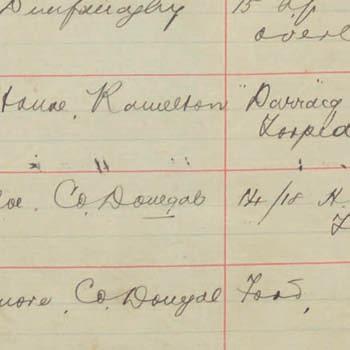 Dunfanaghy 15 hp
over
House, Ramelton "Darracq
Torped
" " " : "
loe. Co. Donegal 14/18 H.
more. Co. Donegal Ford,